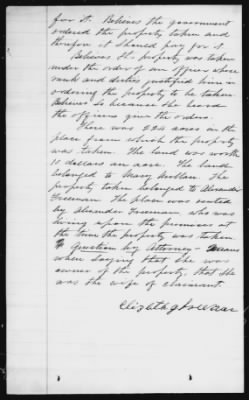 for it. Believes the government
ordered the property taken and
therefore it should pay for it.
Believes the property was taken
under the order of an officer whose
rank and duties justified him in
ordering the property to be taken
Believes so because she heard
the officers give the orders.
There was 234 acres in the
place from which the property
was taken. The land was worth
10 dollars an acre. The land
belonged to Mary Wollan. The
property taken belonged to Alexander
Freeman. The place was rented
by Alexander Freeman who was
living upon the premises at
the time the property was taken.
To Question by Attorney - Means
when saying that she was
owner of the property, that she
was the wife of claimant.
Elizabeth Freeman